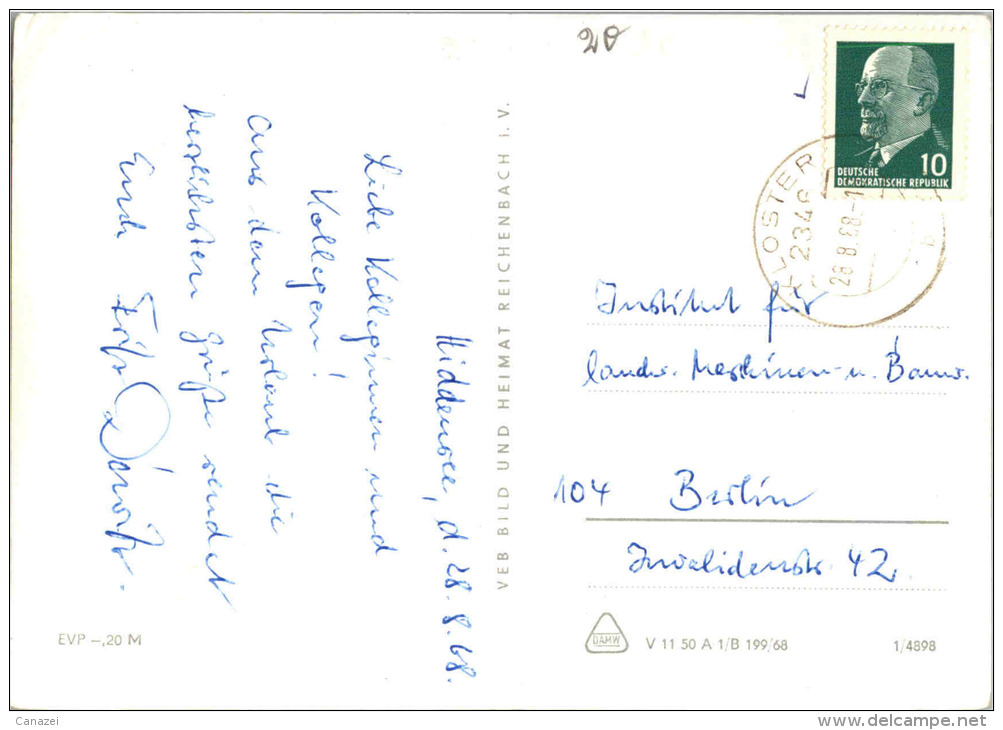 20
DEUTSCHE
DEMOKRATISCHE REPUBLIK
10
KLOSTER
2346
28.8.68-1
b
Hiddensee, d. 28.8.68.
Liebe Kolleginnen und
Kollegen!
Aus dem Urlaub die
herzlichsten Grüße sendet
Euch Fritz
VEB BILD UND HEIMAT REICHENBACH i. V.
Institut für
landw. Maschinen- u. Bauw.
104 Berlin
Invalidenstr. 42
EVP –,20 M
DAMW
V 11 50 A 1/B 199/68
1/4898
Canazei
delcampe.net